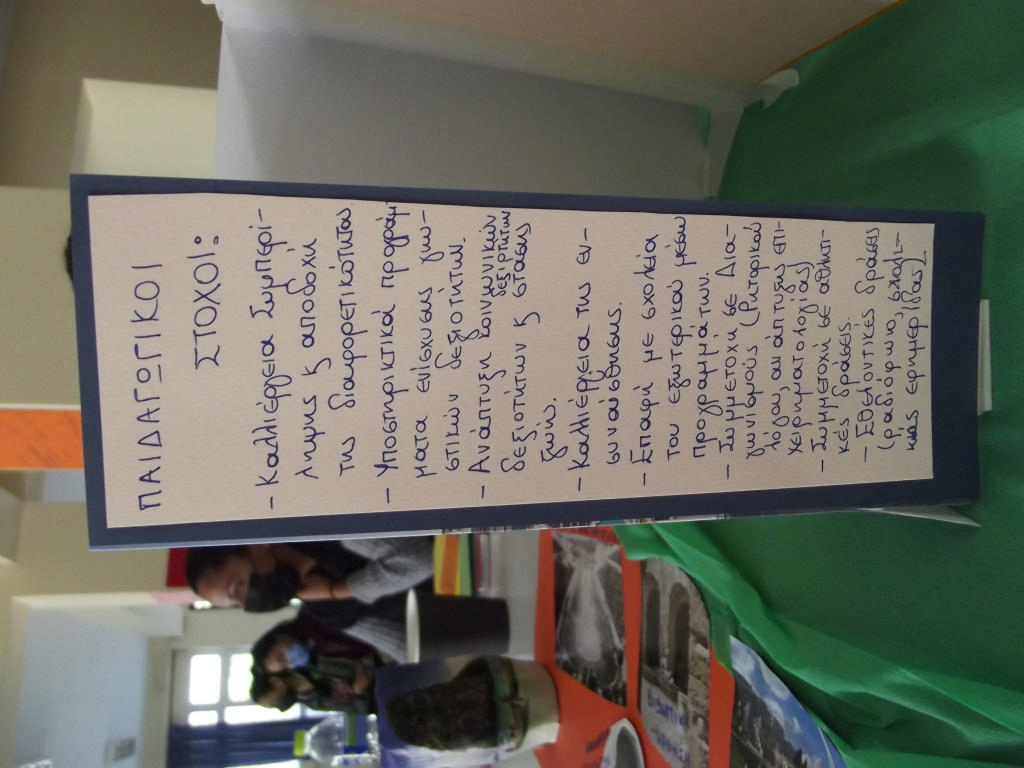 ΠΑΙΔΑΓΩΓΙΚΟΙ
ΣΤΟΧΟΙ:
- Καλλιέργεια Συμπερί-
ληψης & αποδοχή
της διαφορετικότητας.
- Υποστηρικτικά προγράμ
ματα ενίσχυσης γνω-
στικών δεξιοτήτων.
- Ανάπτυξη κοινωνικών
δεξιοτήτων & στάσης
δεξιοτήτων
ζωών.
- Καλλιέργεια της εν-
συναίσθησης.
- Επαφή με σχολεία
του εξωτερικού μέσω
προγραμμάτων.
- Συμμετοχή σε Δια-
γωνισμούς (Ρητορικού
λόγου, ανάπτυξης επι-
χειρηματολογίας)
- Συμμετοχή σε αθλητι-
κές δράσεις.
- Εθελοντικές δράσεις
(ραδιόφωνο, σχολι-
κής εφημερίδας).
ΒΥΖΑΝΤΙΝΗ